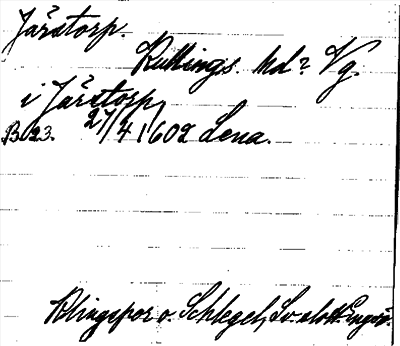 Järstorp.
Kullings. hd? Vg.
i Järstorp
B. 23. 27/4 1602 Lena.
Klingspor o. Schlegel, Sv. slott